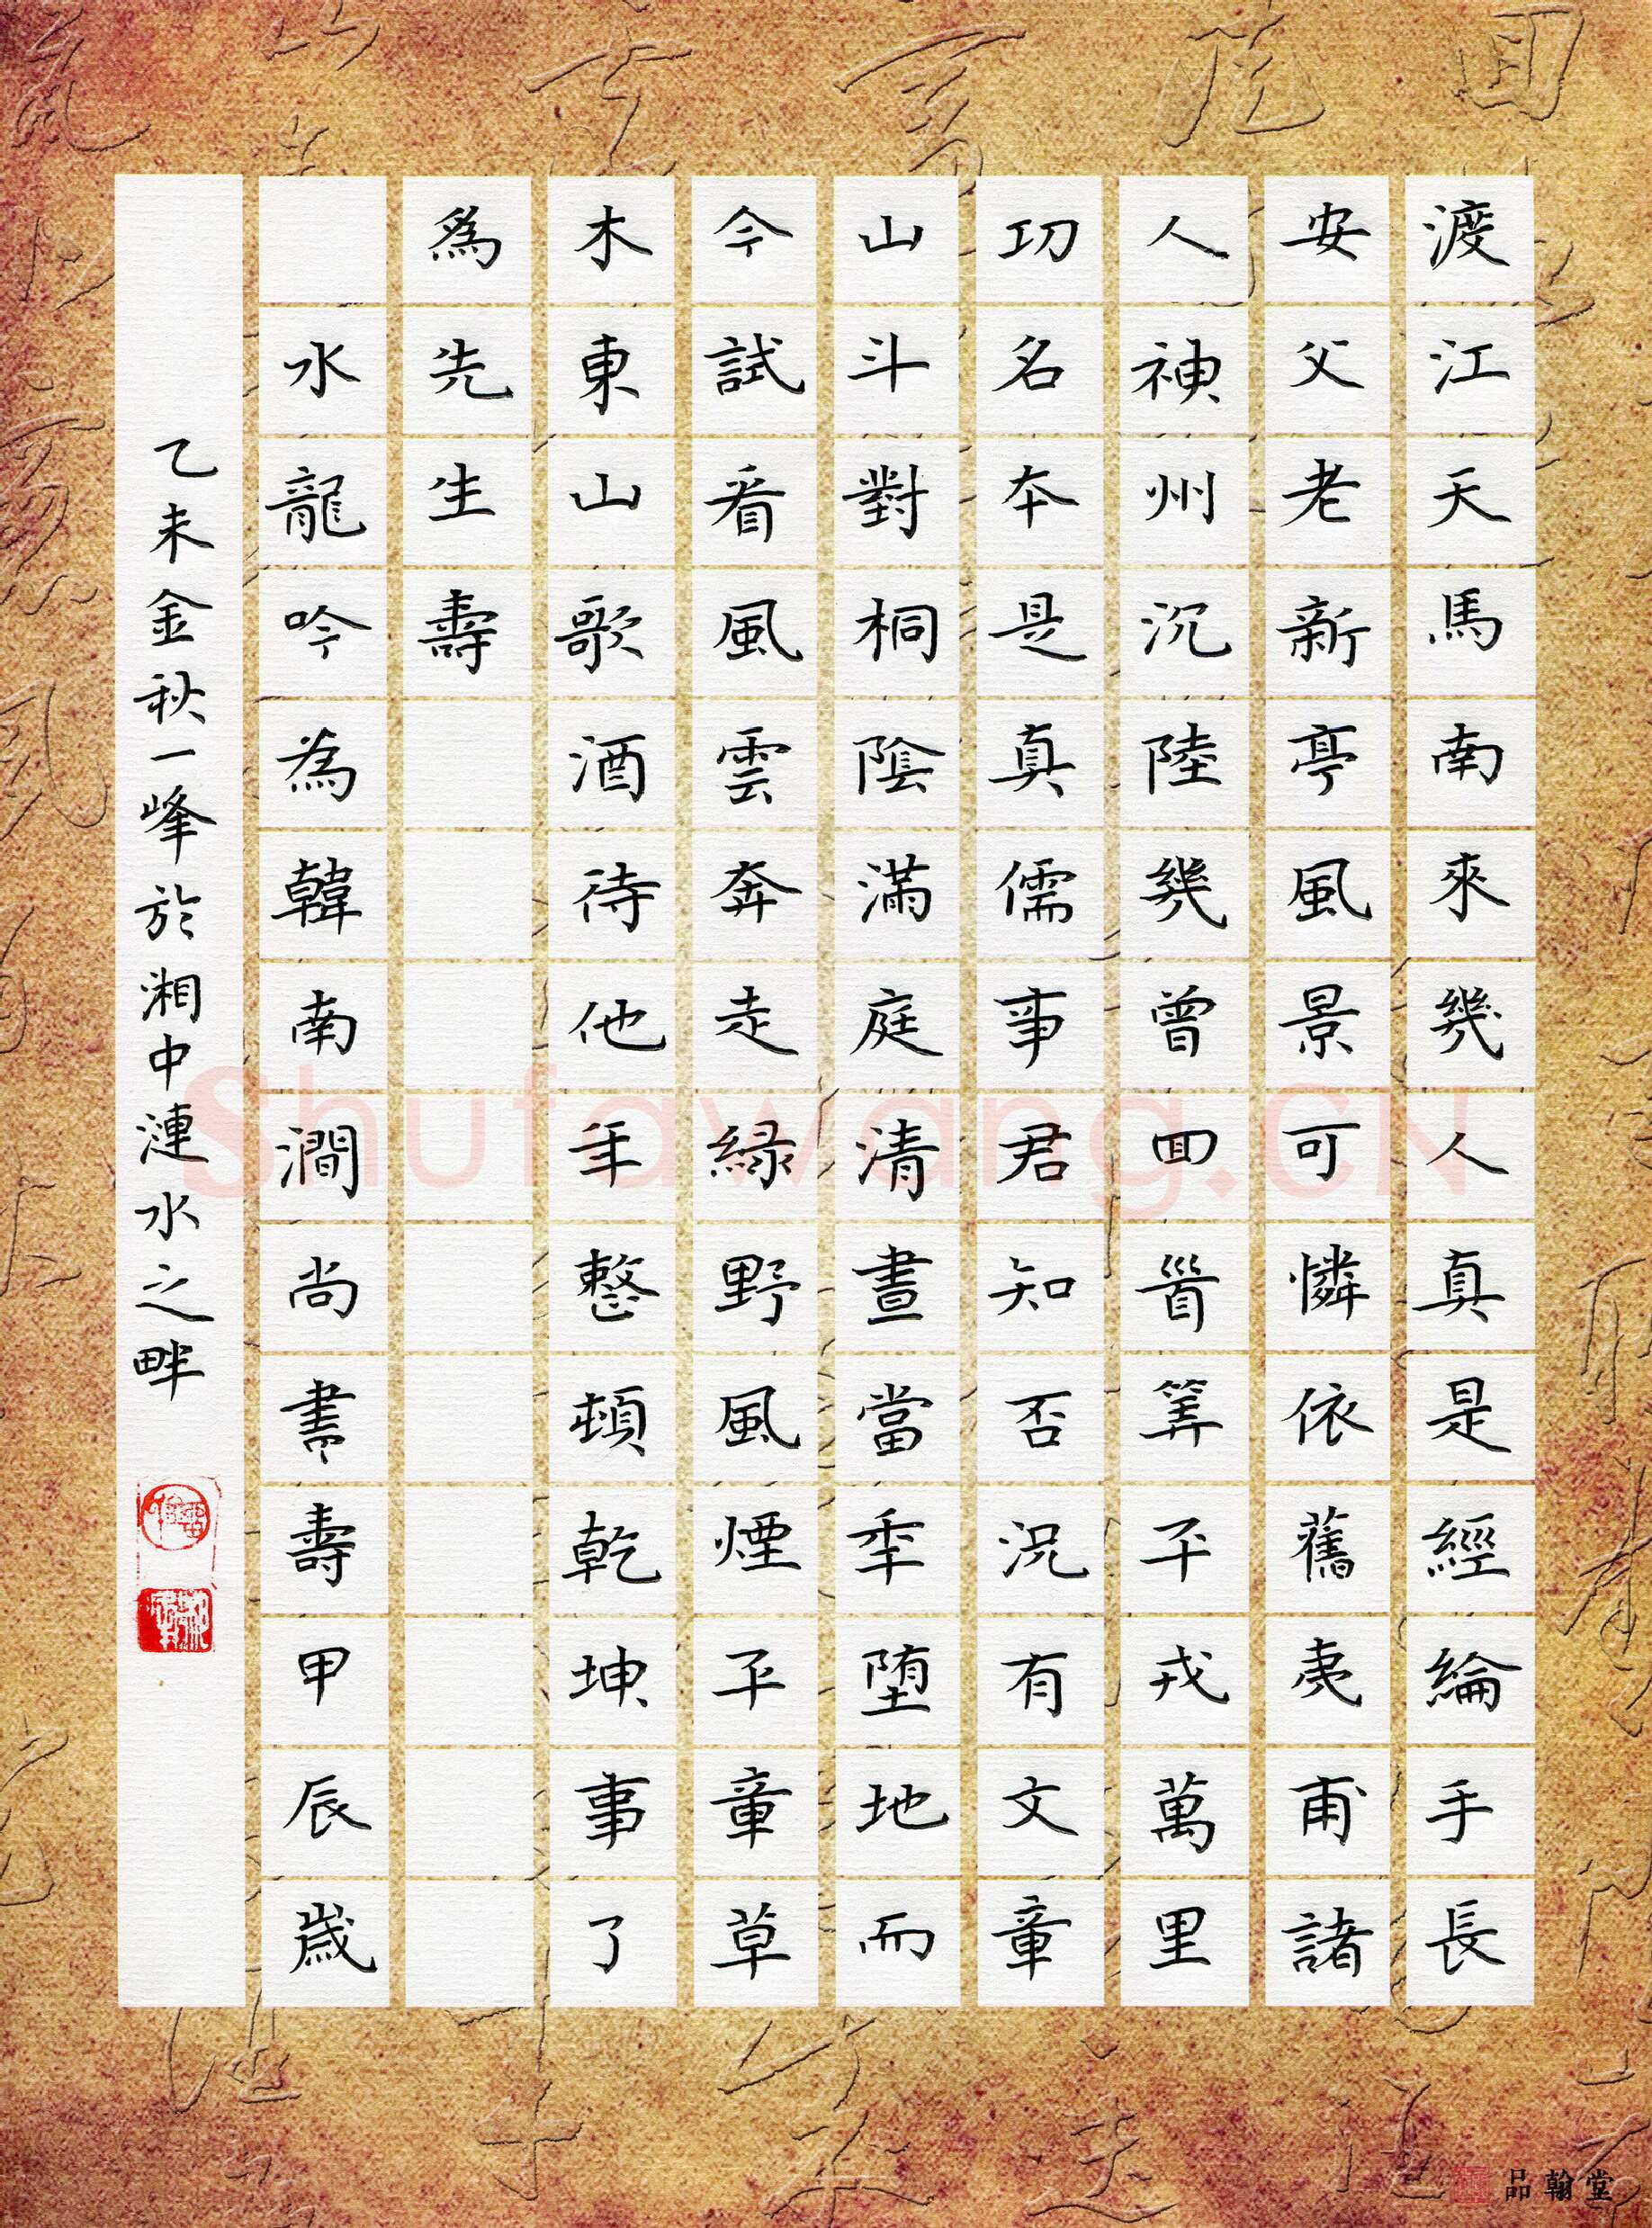 渡江天馬南來幾人真是經綸手長
安父老新亭風景可憐依舊夷甫諸
人神州沉陸幾曾回首算平戎萬里
功名本是真儒事君知否況有文章
山斗對桐陰滿庭清晝當年墮地而
今試看風雲奔走綠野風煙平章草
木東山歌酒待他年整頓乾坤事了
為先生壽
水龍吟為韓南澗尚書壽甲辰歲
乙未金秋一峰於湘中漣水之畔
Shufawang.CN
品翰堂